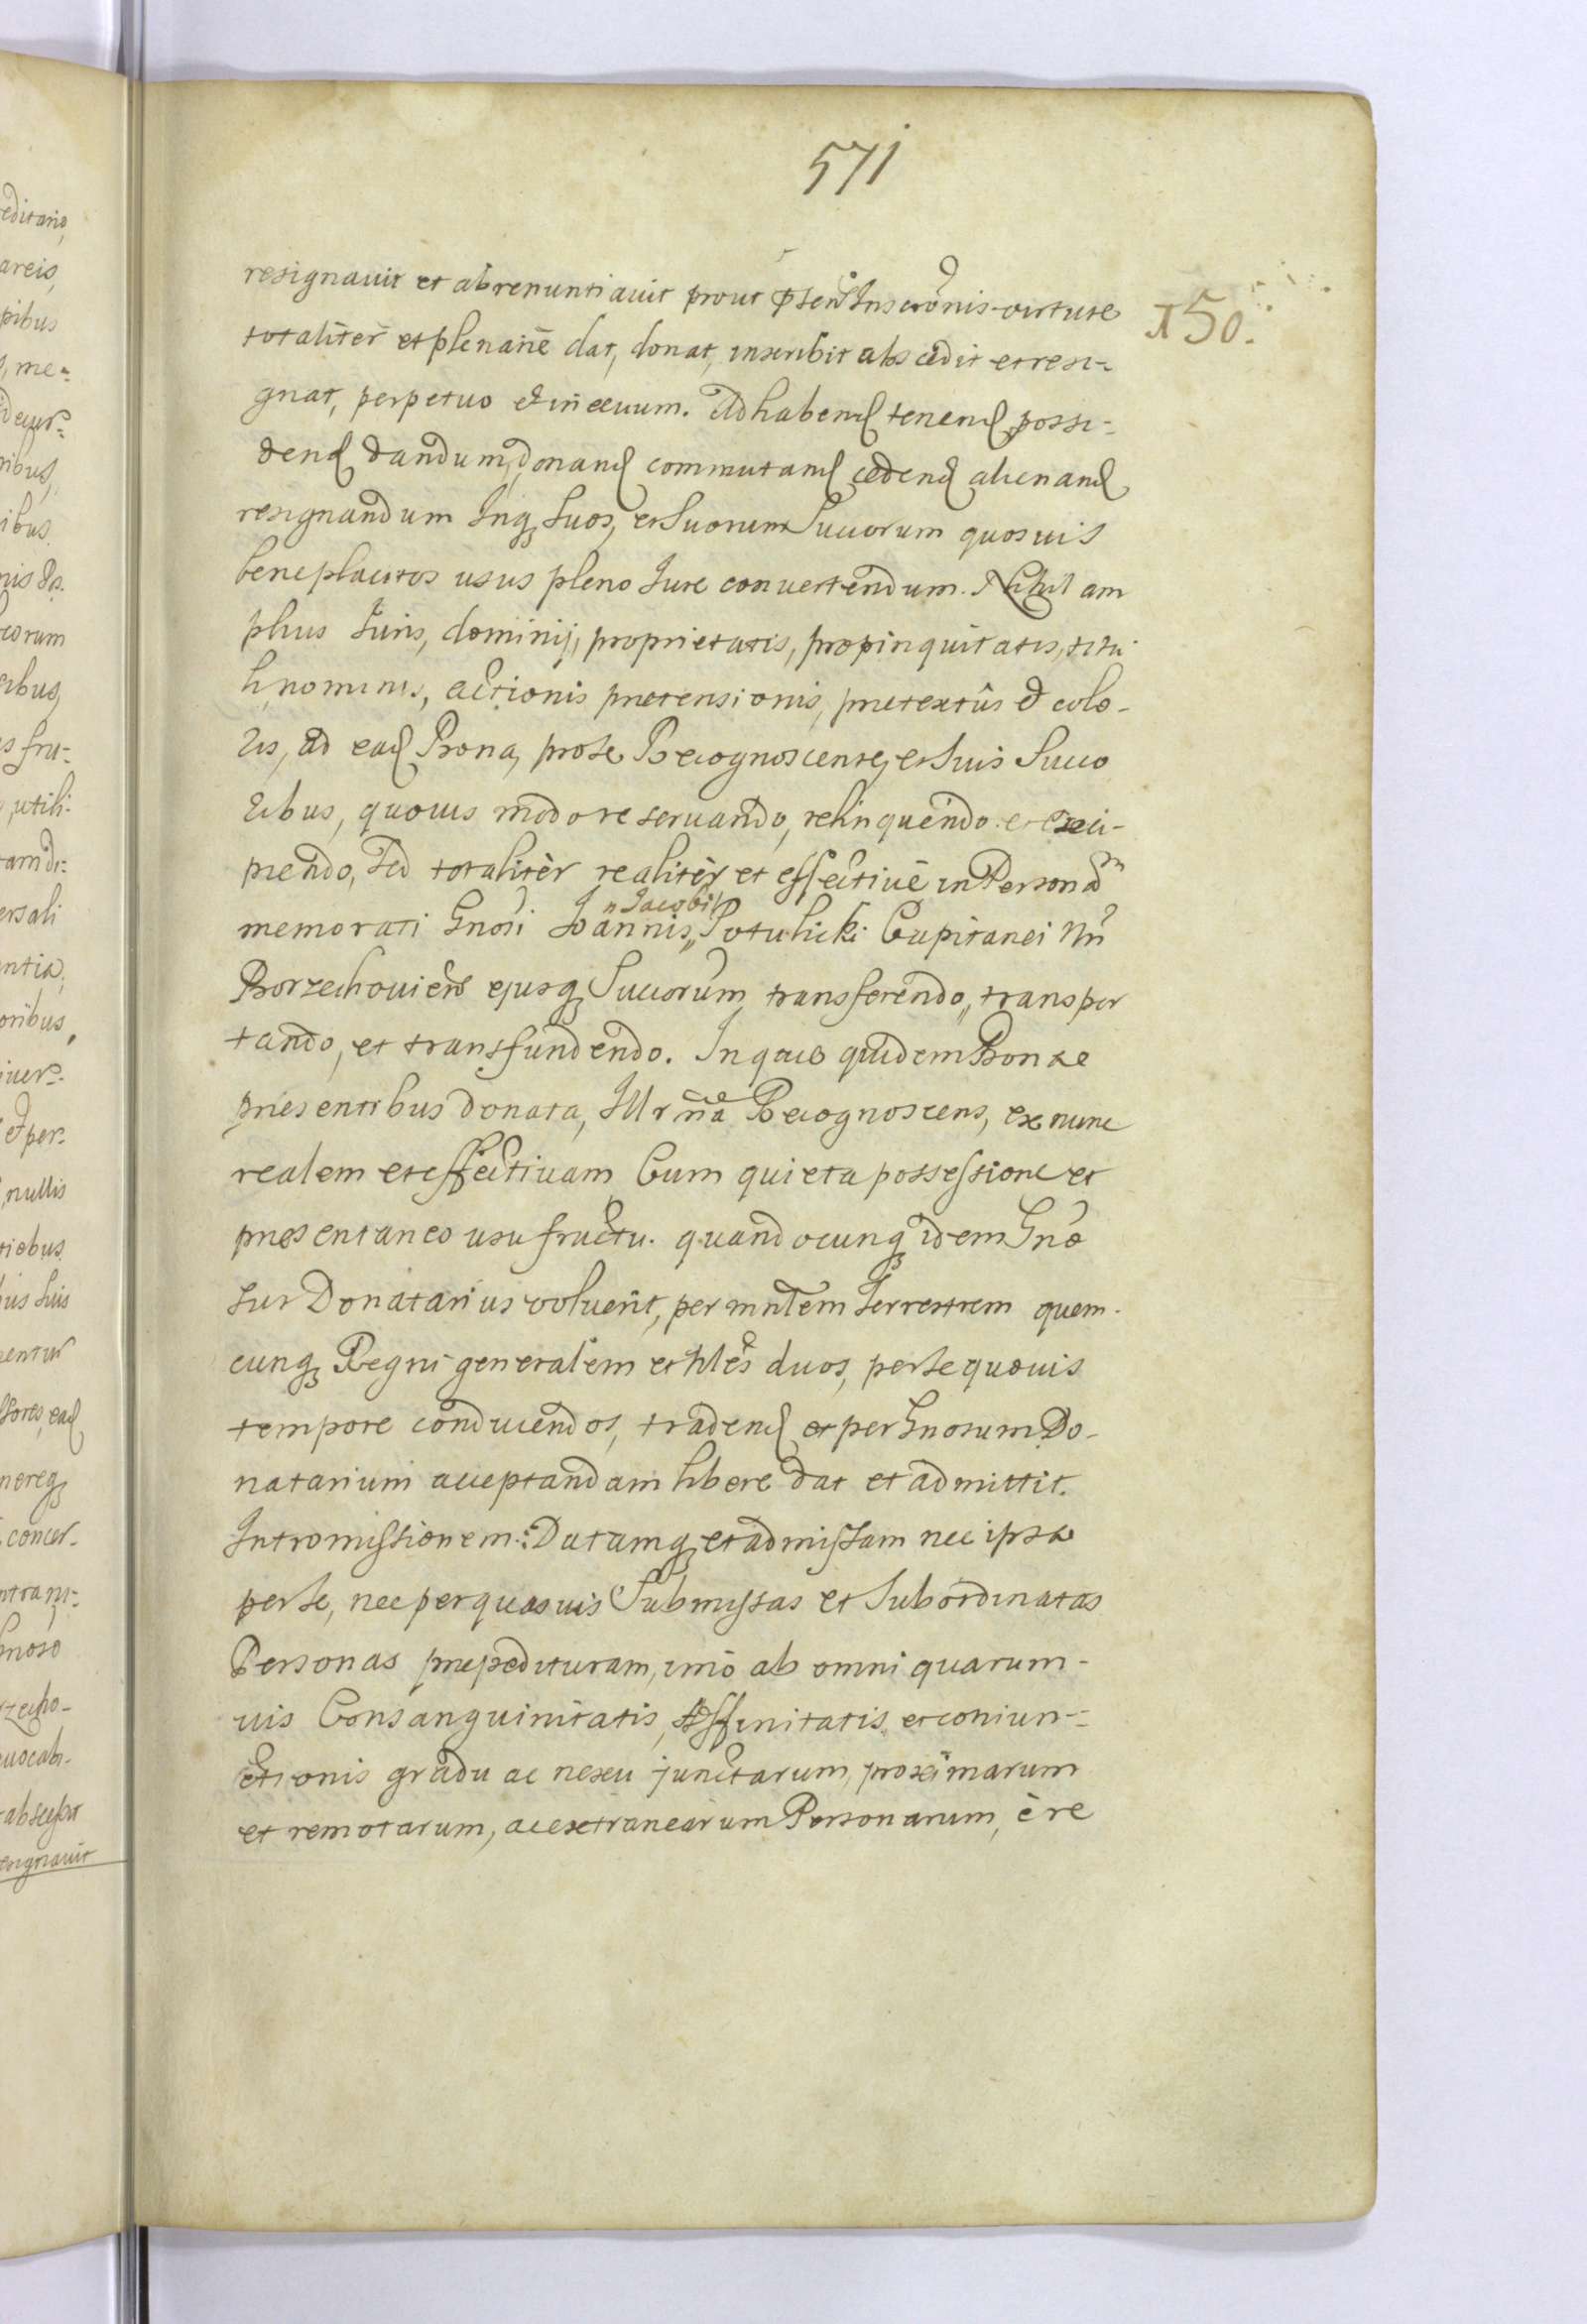 571
150.
resignauit et abrenuntiauit prout pñten Inscrõnis virtute
totaliter et plenarie dat, donat, inscribit abscedit et resi-
gnat, perpetuo et in æuum. Ad habend tenend possi-
dend dandum, donand commutand cedend alienand
resignandum Inq suos, et suorum Succorum quosuis
beneplacitos usus pleno Jure conuertendum. Nihil am
plius Juris, dominij, proprietatis, propinquitatis, titu
li, nominis, actionis prætensionis, prætextûs et colo-
ris, ad ead Bona, pro se Recognoscente, et suis Succo
ribus, quouis modo reseruando, relinquendo et exci-
piendo, sed totalitèr realitèr et effectiuè in Personam
memorati Gnosi Joannis „Jacobi„ Potulicki Capitanei Nri
Borzechouien ejusq Succorum transferendo, transpor
tando, et transfundendo. In quæ quidem Bona
præsentibus donata, Illr mã Recognoscens, ex nunc
realem et effectiuam Cum quieta possessione et
præsentaneo usufructu. quandocunq idem Gño
sus Donatarius voluerit, per mñlem Terrestrem quem-
cunq Regni generalem et Nles duos, per se quouis
tempore conducendos, tradend et per Gnosum Do-
natarium acceptandam libere dat et admittit.
Intromissionem: Datamq et admissam nec ipsa
per se, nec per quasuis Submissas et Subordinatas
Personas præpedituram, imò ab omni quarum-
uis Consanguinitatis, Affinitatis, et coniun-
ctionis gradu ac nexu junctarum, proximarum
et remotarum, ac extranearum Personarum, è re